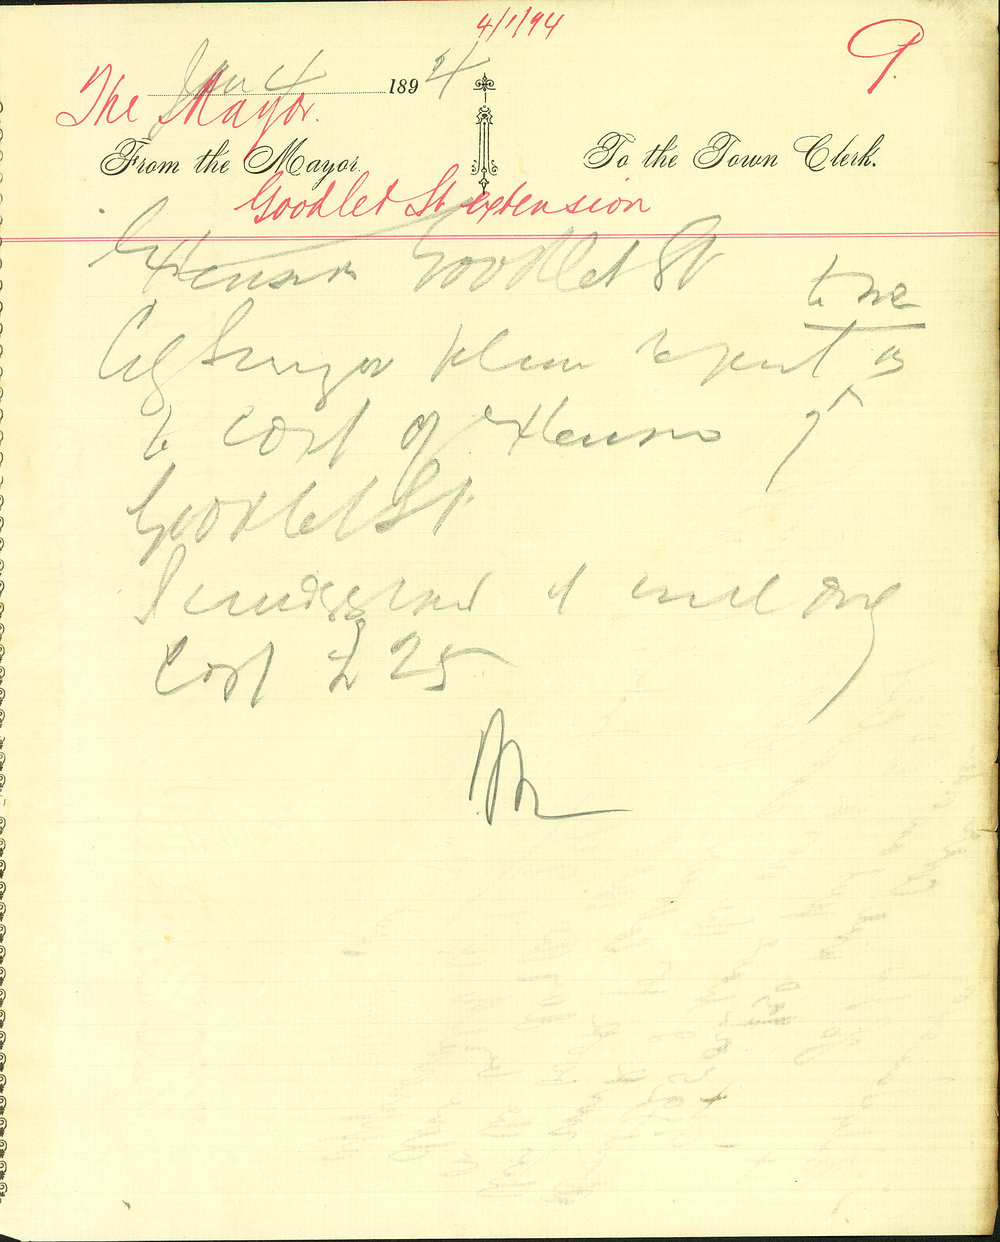 4/1/94
9.
Jan 4 1894
The Mayor.
From the Mayor. To the Town Clerk.
Goodlet St extension
Extension Goodlet St
to me
City Surveyor please report as
to cost of extension of
Goodlet St
I understand it will only
cost £25